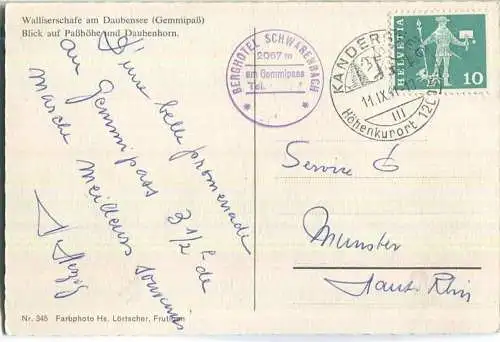 Walliserschafe am Daubensee (Gemmipaß)
Blick auf Paßhöhe und Daubenhorn.
BERGHOTEL SCHWARENBACH
2067 m
am Gemmipass
Tel.
KANDERS
11.IX.
Höhenkurort 1200
HELVETIA
10
D'une belle promenade
au Gemmipass 3 1/2 h de
marche meilleurs souvenirs
Service 6
Munster
Haut-Rhin
Nr. 345 Farbphoto Hs. Lörtscher, Frutigen